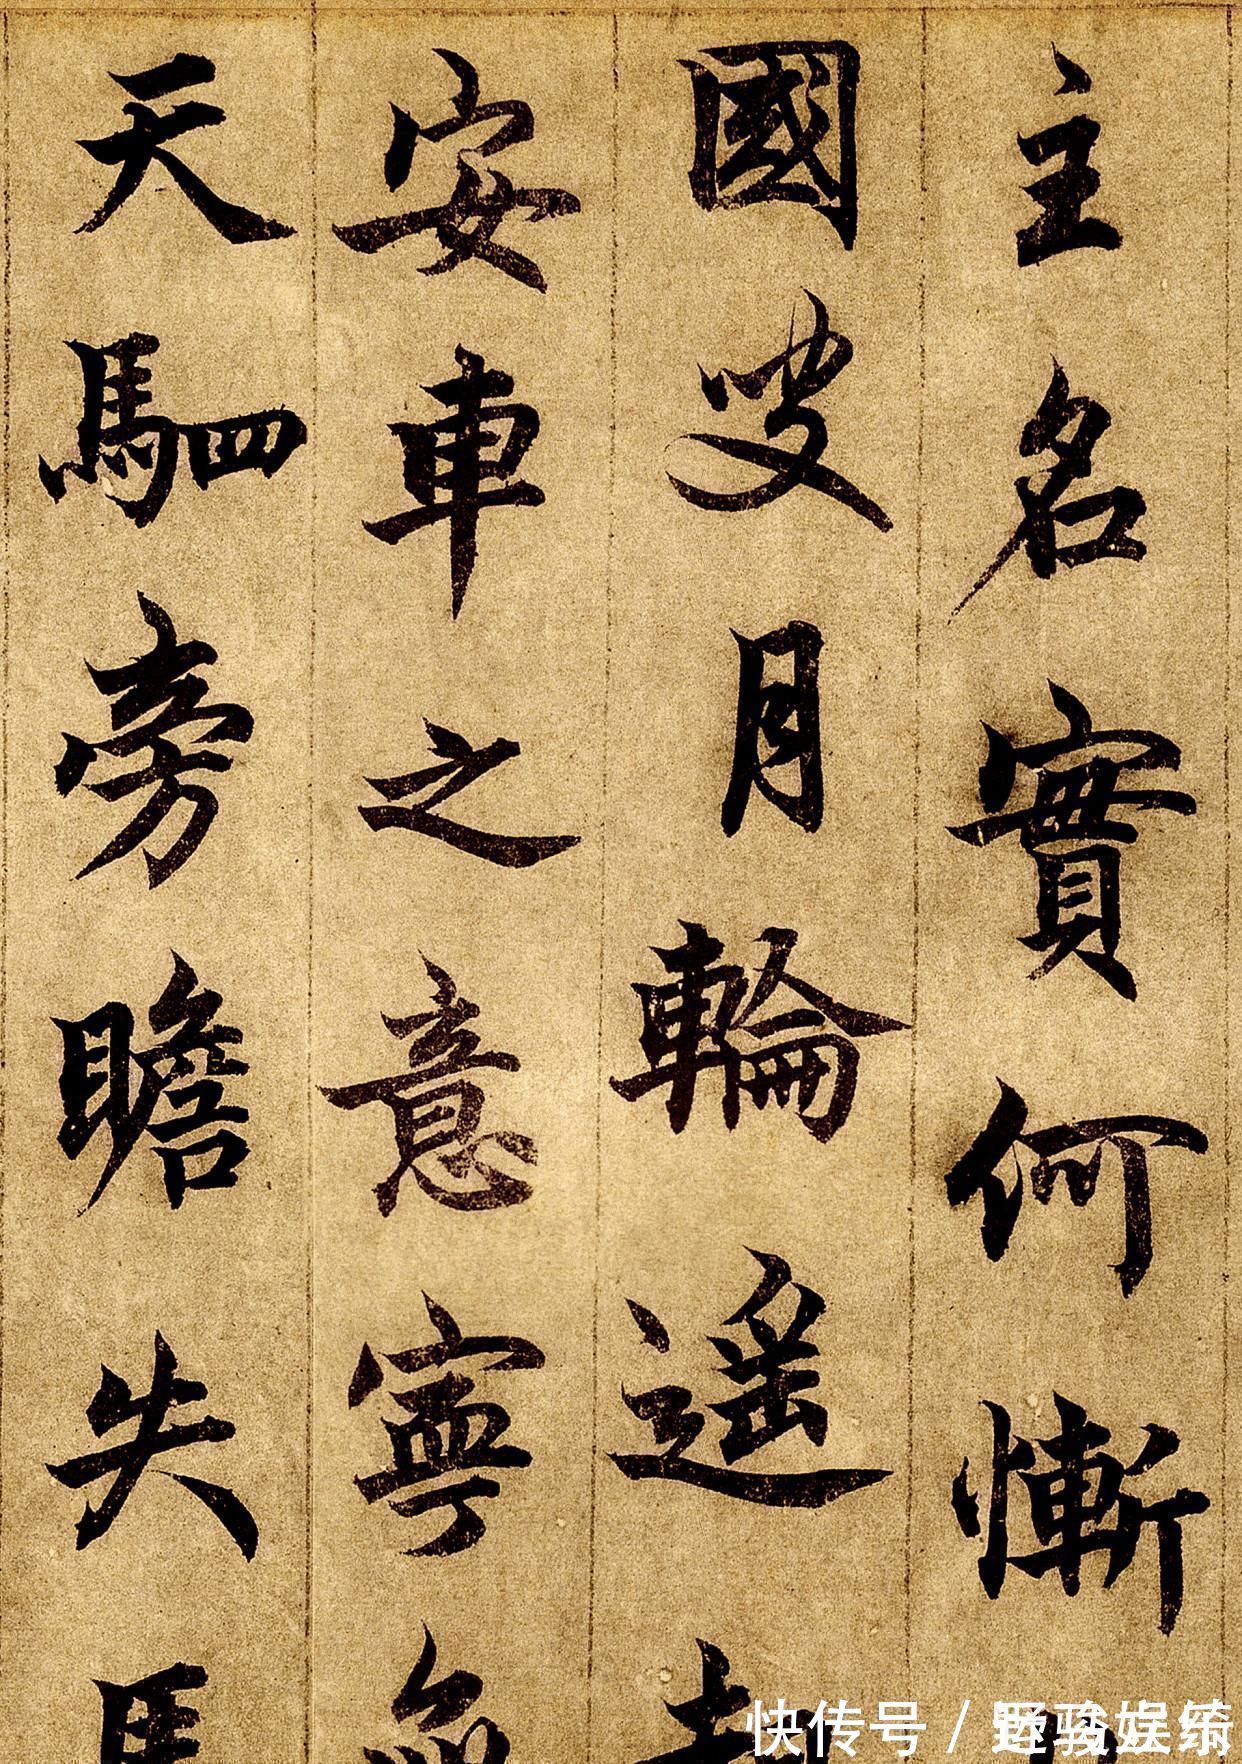 主名實何慚
國叟月輪遥
安車之意寧
天駟旁瞻失馬
快传号 /